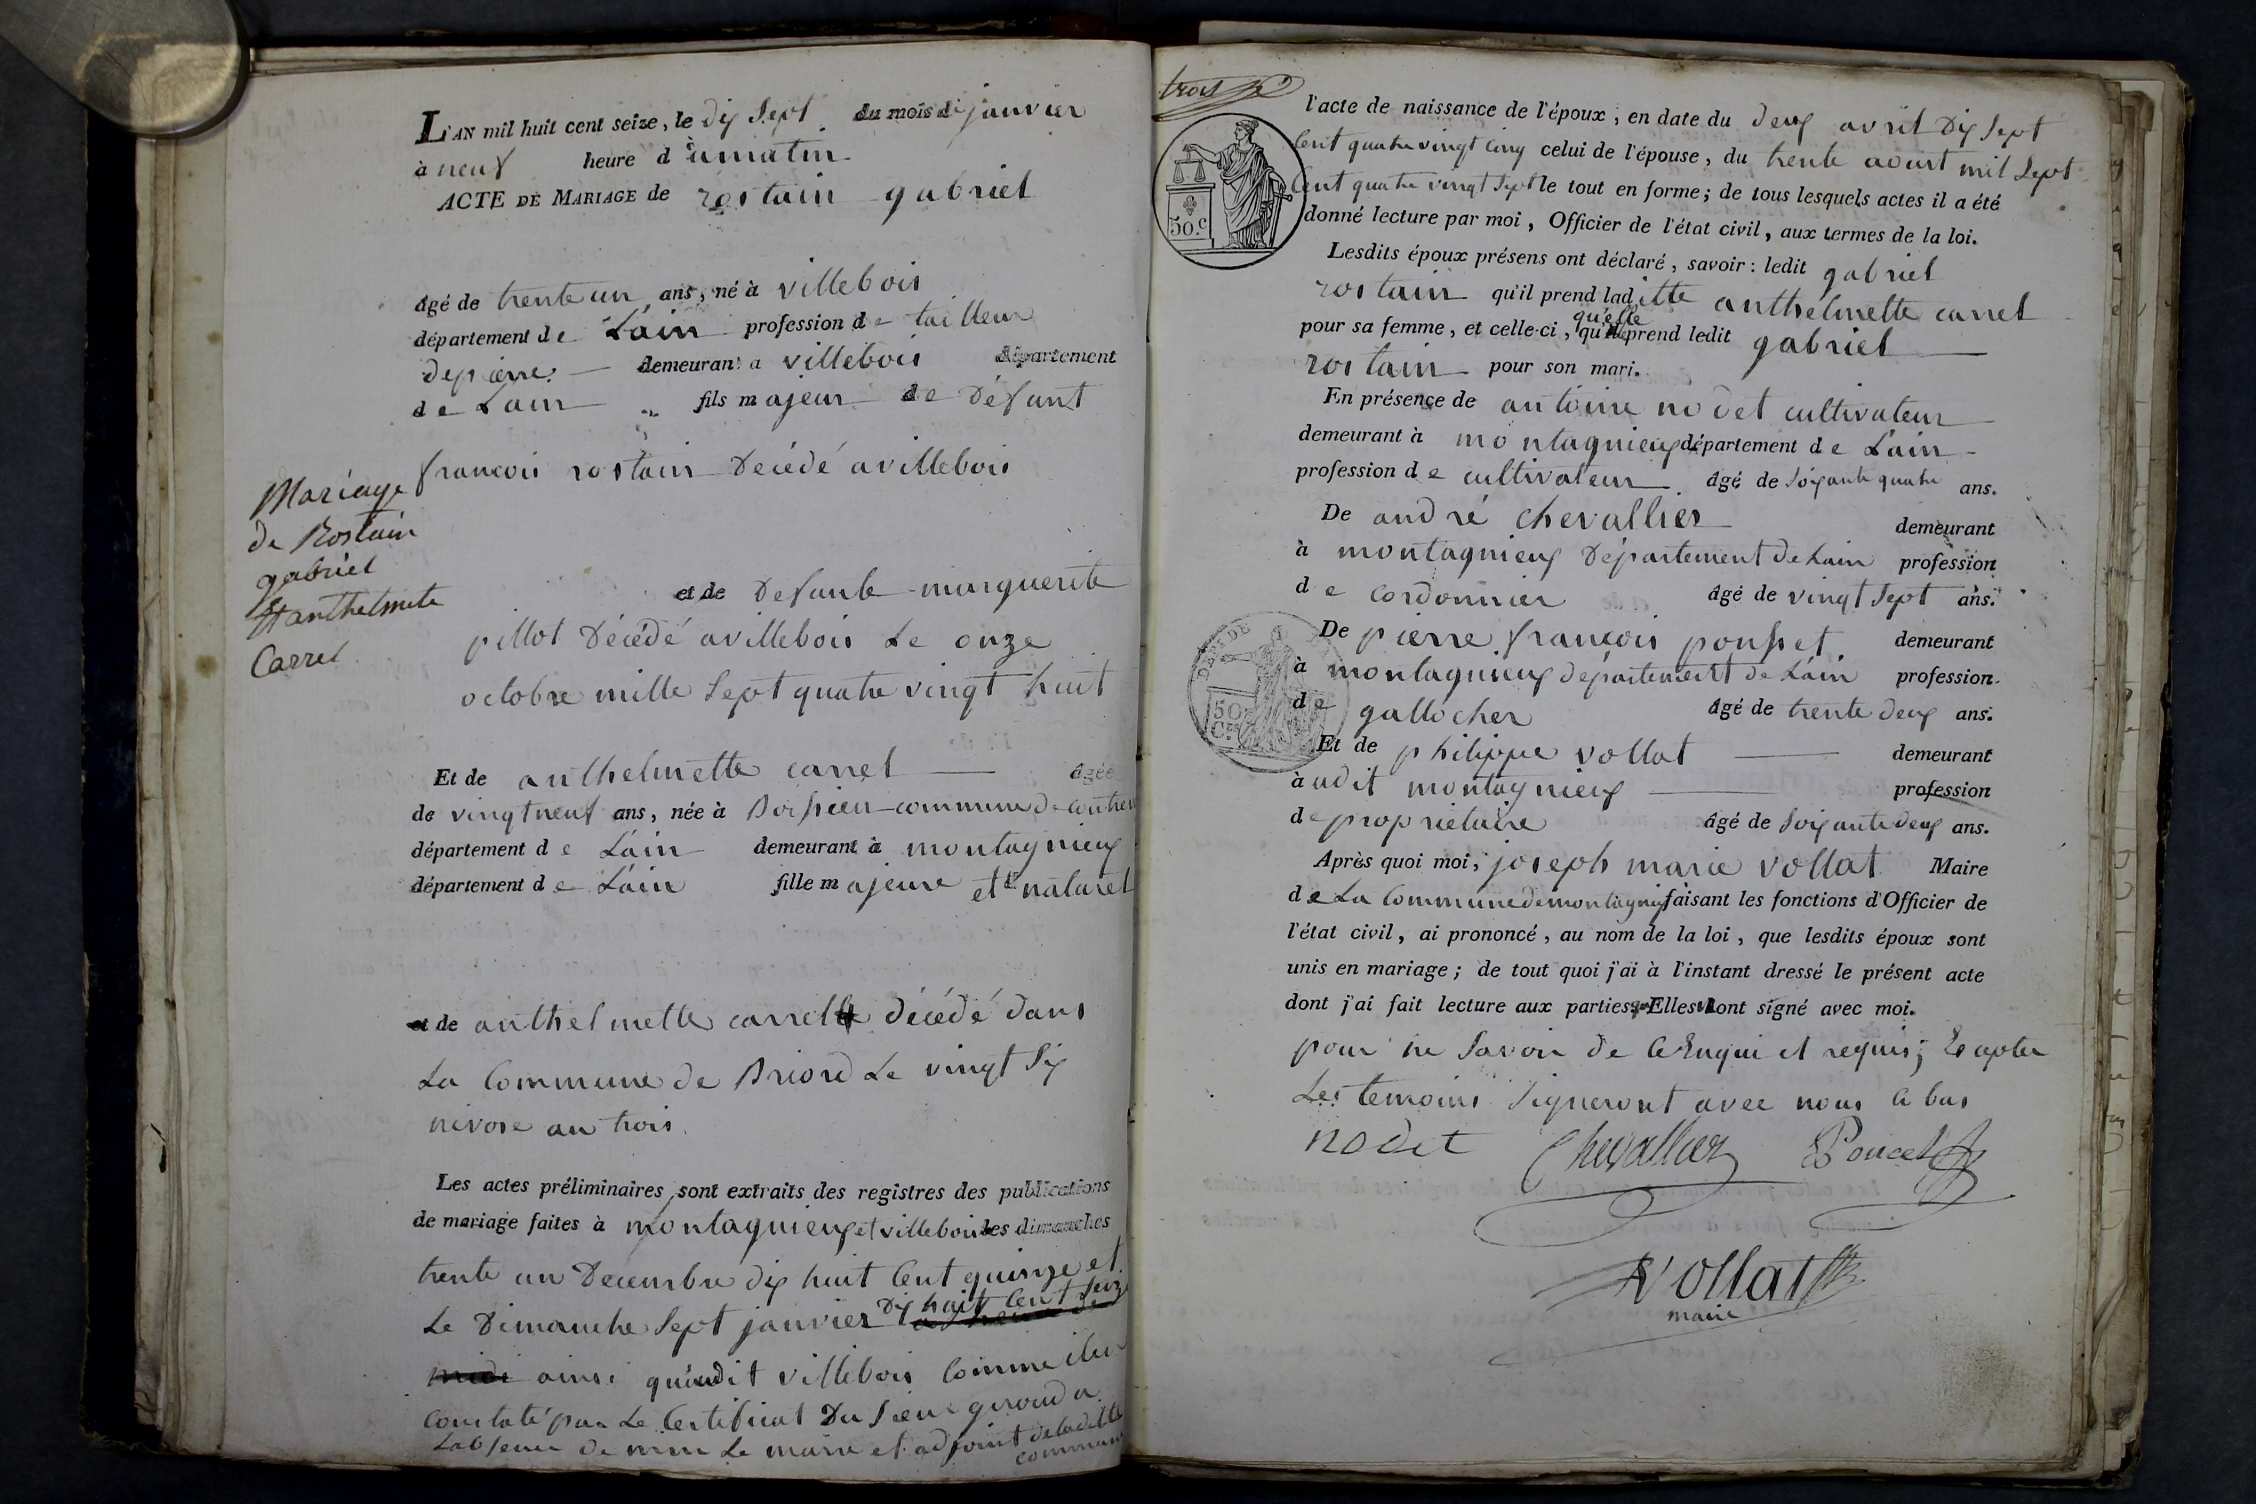 L'AN mil huit cent seize, le dix sept du mois de janvier
à neuf heure d umatin
ACTE DE MARIAGE de rostain gabriel
âgé de trente un ans, né à villebois
département de L'ain profession de tailleur
depierre demeurant a villebois département
de Lain fils majeur de Défunt
françois rostain Décédé avillebois
Mariage
de Rostain
gabriel
et anthelmete
Carrel
et de Defunte marguerite
pillot Décédé avillebois Le onze
octobre mille sept quatre vingt huit
Et de anthelmette carrel âgée
de vingtneuf ans, née à Boissieu commune de
département de L'ain demeurant à montagnieux
département de L'ain fille majeure et naturel
et de anthelmette carrell décédé dans
La Commune de Briord Le vingt six
nivose an trois
Les actes préliminaires sont extraits des registres des publications
de mariage faites à montagnieux et villebois les dimanches
trente un Decembre dix huit Cent quinze et
Le Dimanche sept janvier Dix huit Cent seize
midi ainsi qu'audit villebois Comme
Constaté par Le Certificat Du sieur giroud a
L'absence de Le maire et adjoint deladitte
commune
trois
l'acte de naissance de l'époux, en date du deux avril Dix sept
Cent quatre vingt cinq celui de l'épouse, du trente aout mil sept
Cent quatre vingt sept le tout en forme; de tous lesquels actes il a été
donné lecture par moi, Officier de l'état civil, aux termes de la loi.
50.c
Lesdits époux présens ont déclaré, savoir: ledit gabriel
rostain qu'il prend laditte anthelmette carrel
qu'elle
pour sa femme, et celle-ci, qu'il prend ledit gabriel
rostain pour son mari.
En présence de antoine nodet cultivateur
demeurant à montagnieux département de L'ain
profession de cultivateur âgé de soixante quatre ans.
De andré chevallier demeurant
à montagnieux Département de Lain profession
de cordonnier âgé de vingt sept ans.
De pierre françois pousset demeurant
à montagnieux département de L'ain profession
50
de gallocher âgé de trente deux ans.
Et de philippe vollat demeurant
à udit montagnieux profession
de propriétaire âgé de soixante deux ans.
Après quoi moi, joseph marie vollat Maire
de La Commune de montagnieux faisant les fonctions d'Officier de
l'état civil, ai prononcé, au nom de la loi, que lesdits époux sont
unis en mariage; de tout quoi j'ai à l'instant dressé le présent acte
dont j'ai fait lecture aux parties Elles ont signé avec moi.
pour ne savoir de Ce Enqui et requis;
Les temoins signeront avec nous a bas
nodet Chevallier Poncet
Vollat
maire